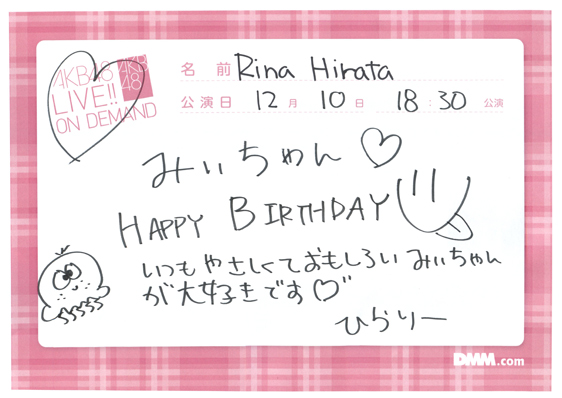 AKB48
LIVE!!
ON DEMAND
AKB
48
名前 Rina Hirata
公演日 12月 10日 18:30 公演
みぃちゃん♡
HAPPY BIRTHDAY
いつもやさしくておもしろいみぃちゃん
が大好きです♡"
ひらりー
DMM.com